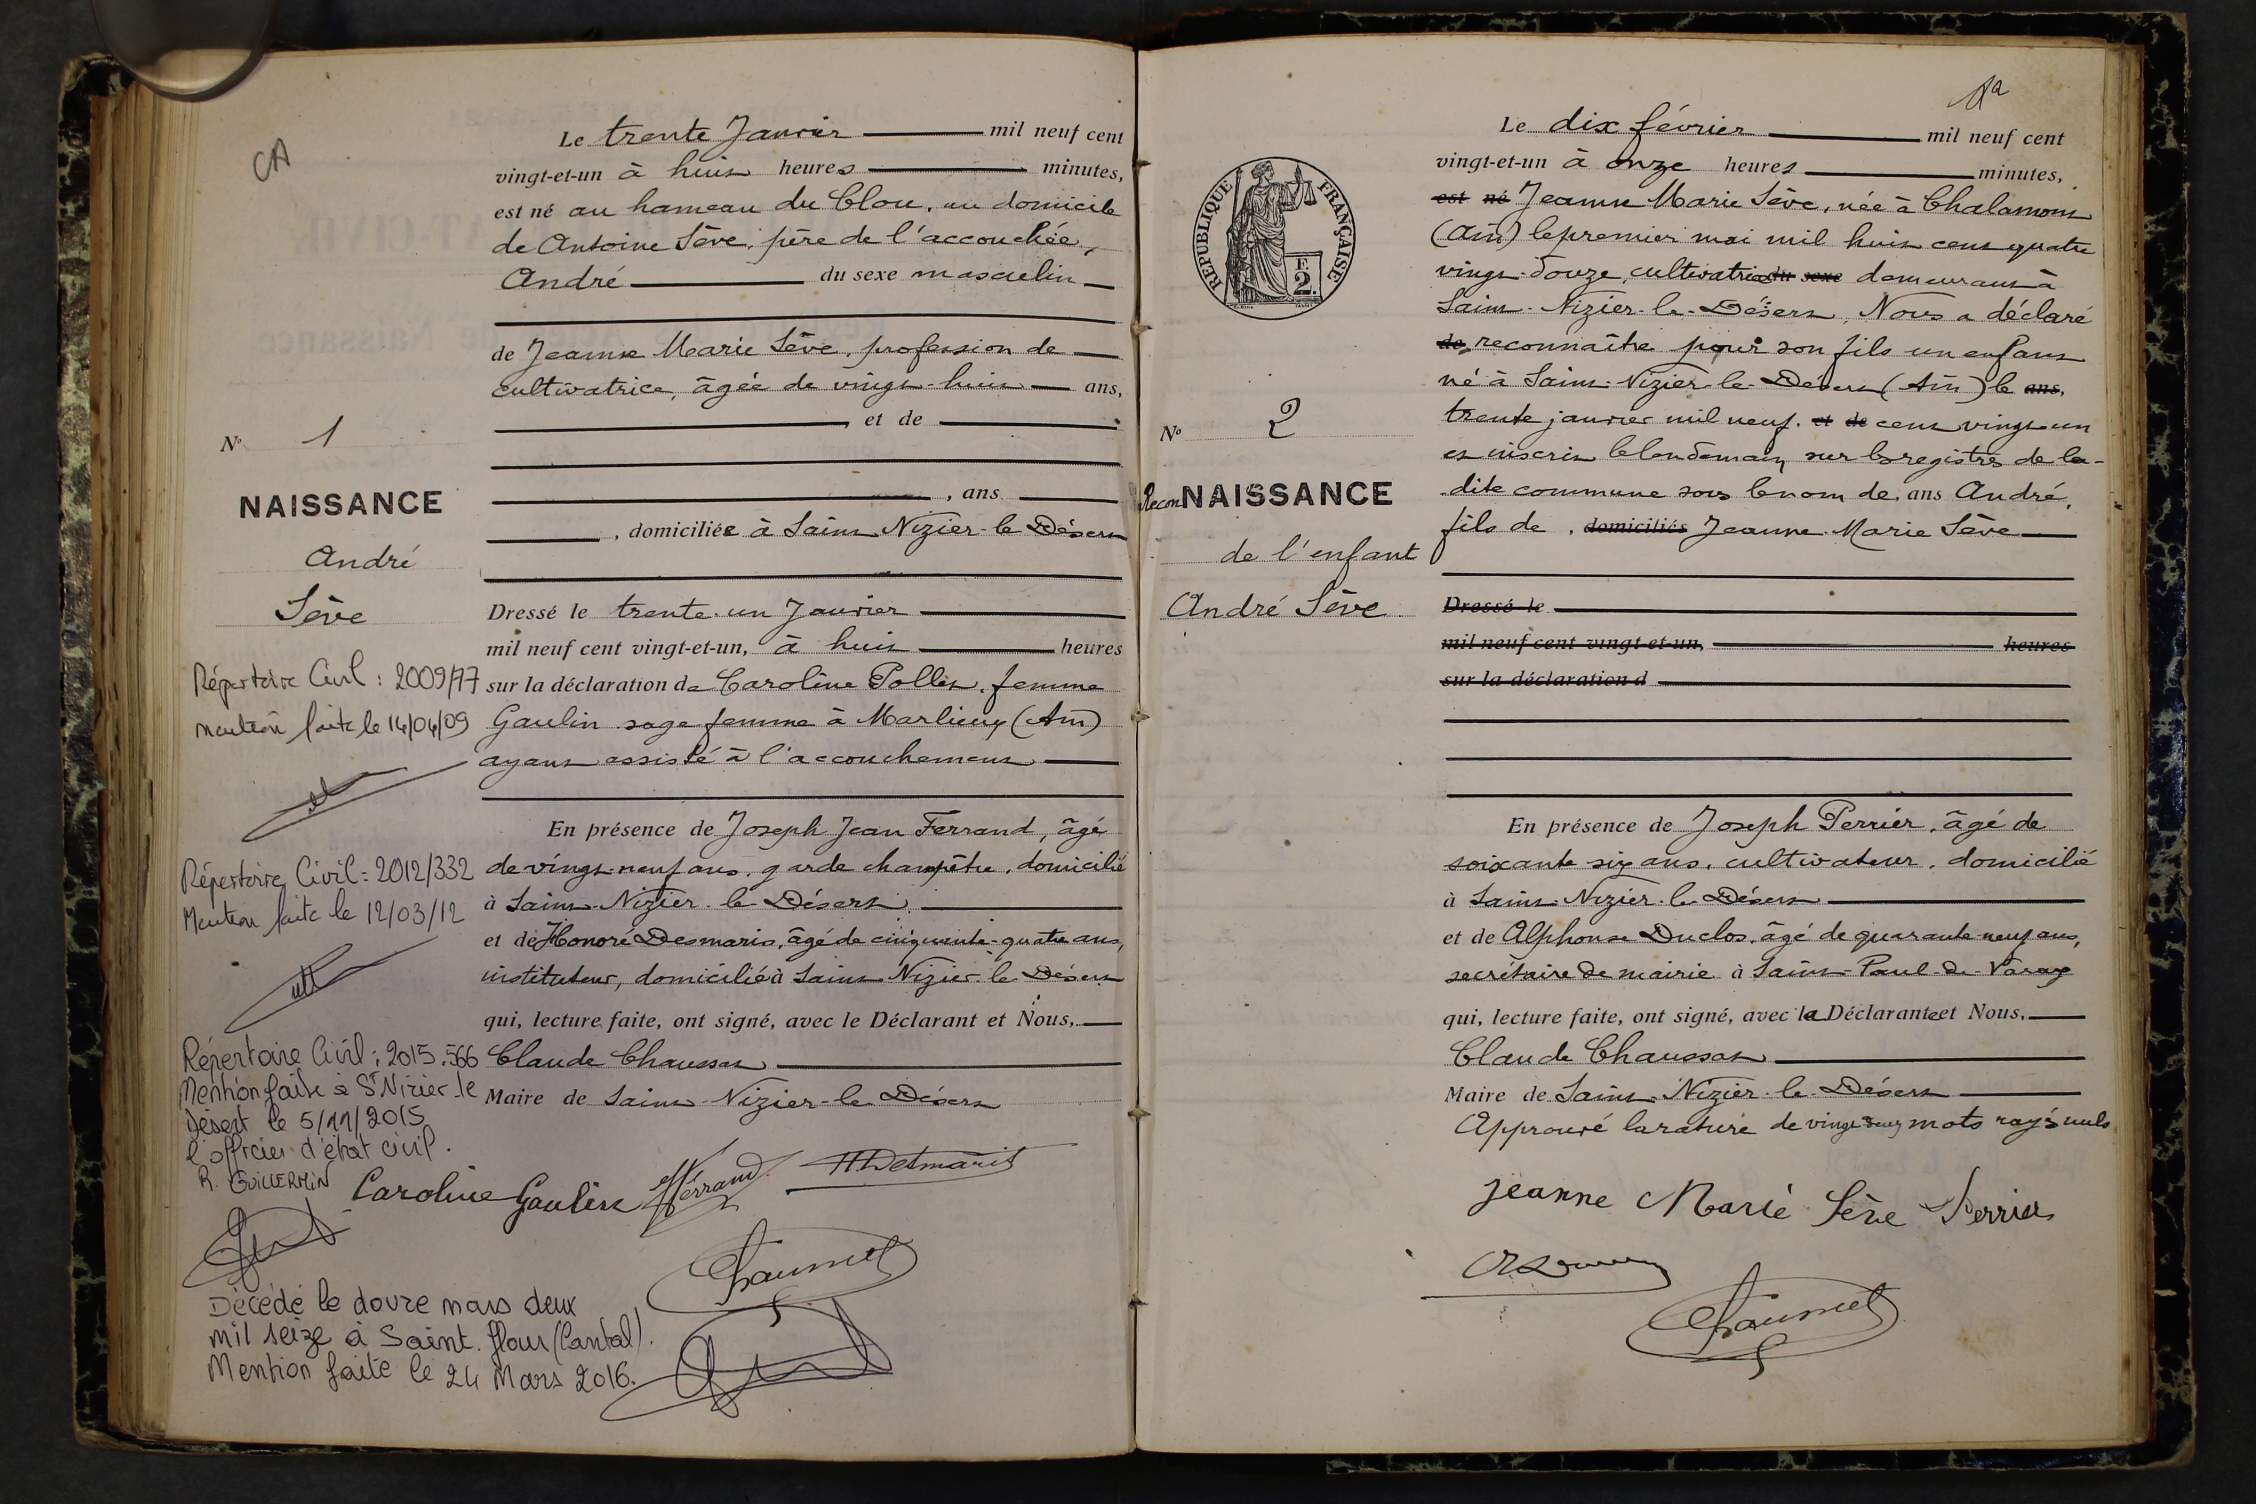 CA
Le trente Janvier mil neuf cent
vingt-et-un à huit heures minutes,
est né au hameau du Clou, au domicile
de Antoine Sève, père de l'accouchée,
André du sexe masculin
de Jeanne Marie Sève, profession de
cultivatrice, âgée de vingt-huit ans,
et de
, ans
, domiciliée à Saint Nizier-le Désert
Dressé le trente-un Janvier
mil neuf cent vingt-et-un, à huit heures
sur la déclaration de Caroline Pollet, femme
Gaulin sage femme à Marlieux (Ain)
ayant assisté à l'accouchement
En présence de Joseph Jean Ferrand, âgé
de vingt-neuf ans, garde champêtre, domicilié
à Saint-Nizier-le Désert,
et de Honoré Desmaris, âgé de cinquante-quatre ans,
instituteur, domicilié à Saint Nizier-le Désert
qui, lecture faite, ont signé, avec le Déclarant et Nous,
Claude Chaussat
Maire de Saint-Nizier-le-Désert
Caroline Gaulin Ferrand HDesmaris
N° 1
NAISSANCE
André
Sève
Répertoire Civil : 2009/77
mention faite le 14/04/09
Répertoire Civil = 2012/332
Mention faite le 12/03/12
Répertoire Civil : 2015.566
Mention faite à St Nizier le
Désert le 5/11/2015
l'officier d'état civil.
R. GUILLERMIN
Décédé le douze mars deux
mil seize à Saint-flour (Cantal).
Mention faite le 24 Mars 2016.
REPUBLIQUE FRANÇAISE
F.
2.
N° 2
ReconNAISSANCE
de l'enfant
André Sève
Le dix février mil neuf cent
vingt-et-un à onze heures minutes,
est né Jeanne Marie Sève, née à Chalamont
(Ain) le premier mai mil huit cent quatre
vingt-douze, cultivatrice du sexe demeurant à
Saint-Nizier-le-Désert, Nous a déclaré
de reconnaître pour son fils un enfant
né à Saint-Nizier-le-Désert (Ain) le ans,
trente janvier mil neuf. et de cent vingt-un
et inscrit le lendemain sur les registres de la-
dite commune sous le nom de, ans André,
fils de , domiciliés Jeanne-Marie Sève
Dressé le
mil neuf cent vingt-et-un, heures
sur la déclaration d
En présence de Joseph Perrier, âgé de
soixante-six ans, cultivateur, domicilié
à Saint-Nizier-le-Désert
et de Alphonse Duclos, âgé de quarante-neuf ans,
secrétaire de mairie à Saint-Paul-de-Varax
qui, lecture faite, ont signé, avec la Déclarante et Nous,
Claude Chaussat
Maire de Saint-Nizier-le-Désert
Approuvé la rature de vingt-deux mots rayés nuls
Jeanne Marie Sève Perrier